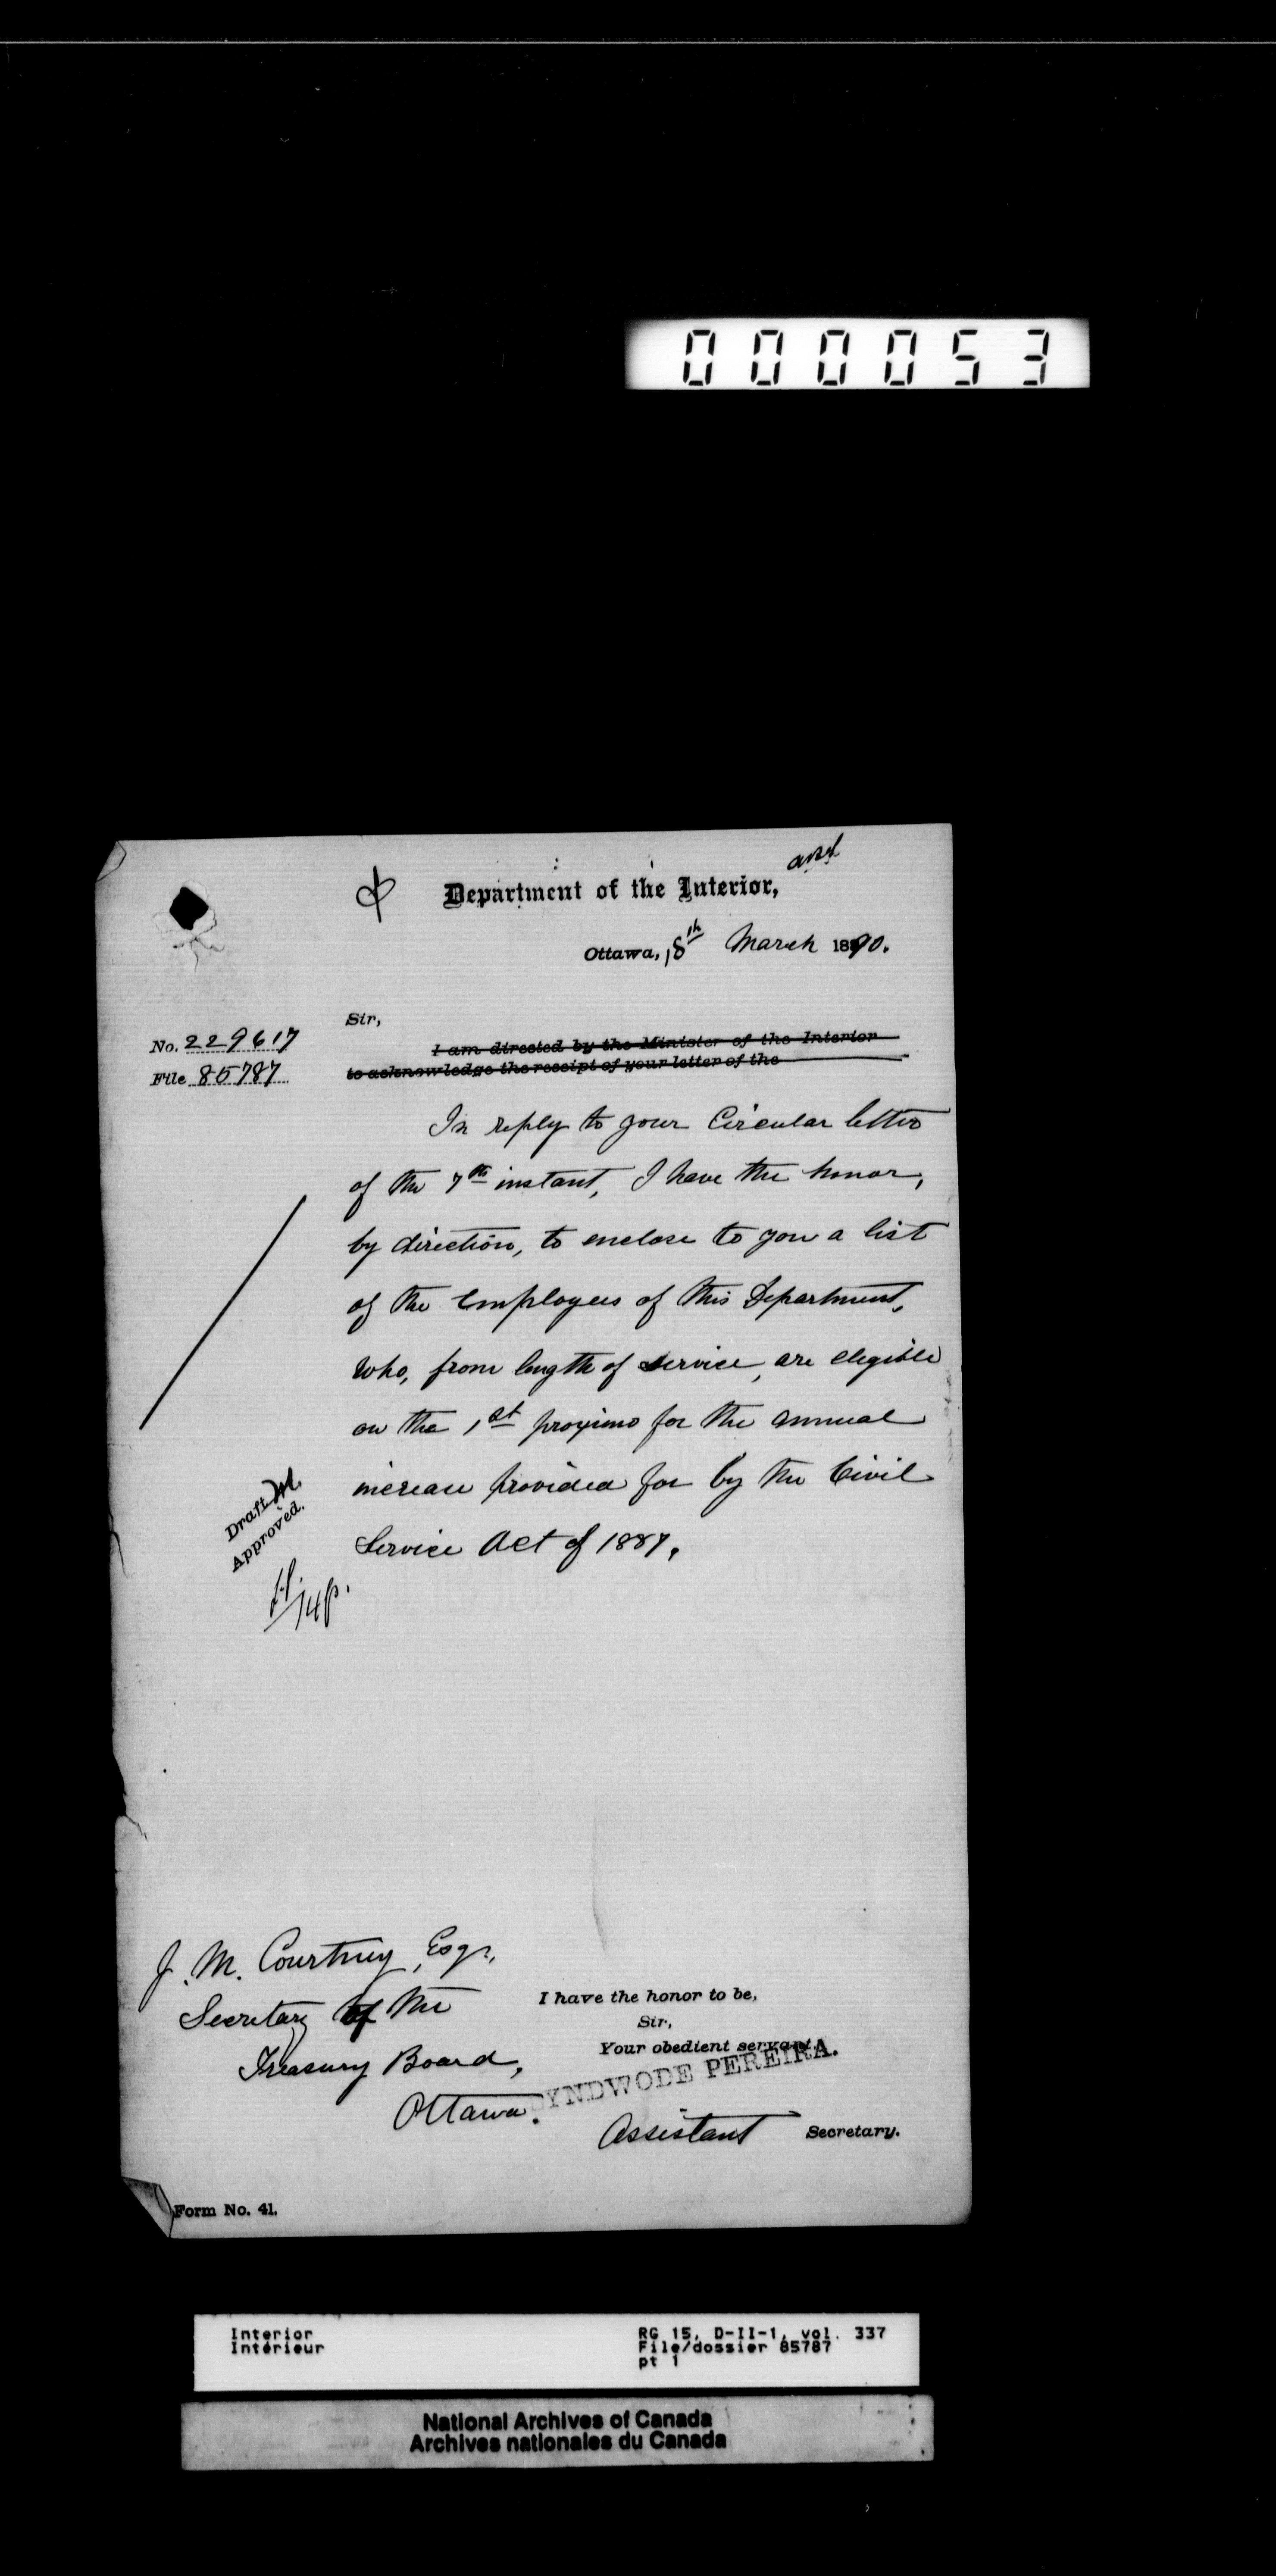 000053
Department of the Interior,
Ottawa, 18th March 1890.
Sir,
No. 229617
File 85787
I am directed by the Minister of the Interior
to acknowledge the receipt of your letter of the
In reply to your Circular letter
of the 7th instant, I have the honor,
by direction, to enclose to you a list
of the Employees of this Department,
who, from length of service, are eligible
on the 1st proximo for the annual
increase provided for by the Civil
Service Act of 1887.
Draft
Approved.
J. M. Courtney, Esqr,
Secretary of the
Treasury Board,
Ottawa.
I have the honor to be,
Sir,
Your obedient servant,
LYNDWODE PEREIRA.
Assistant Secretary.
Form No. 41.
Interior
Intérieur
RG 15, D-II-1, vol. 337
File/dossier 85787
pt 1
National Archives of Canada
Archives nationales du Canada